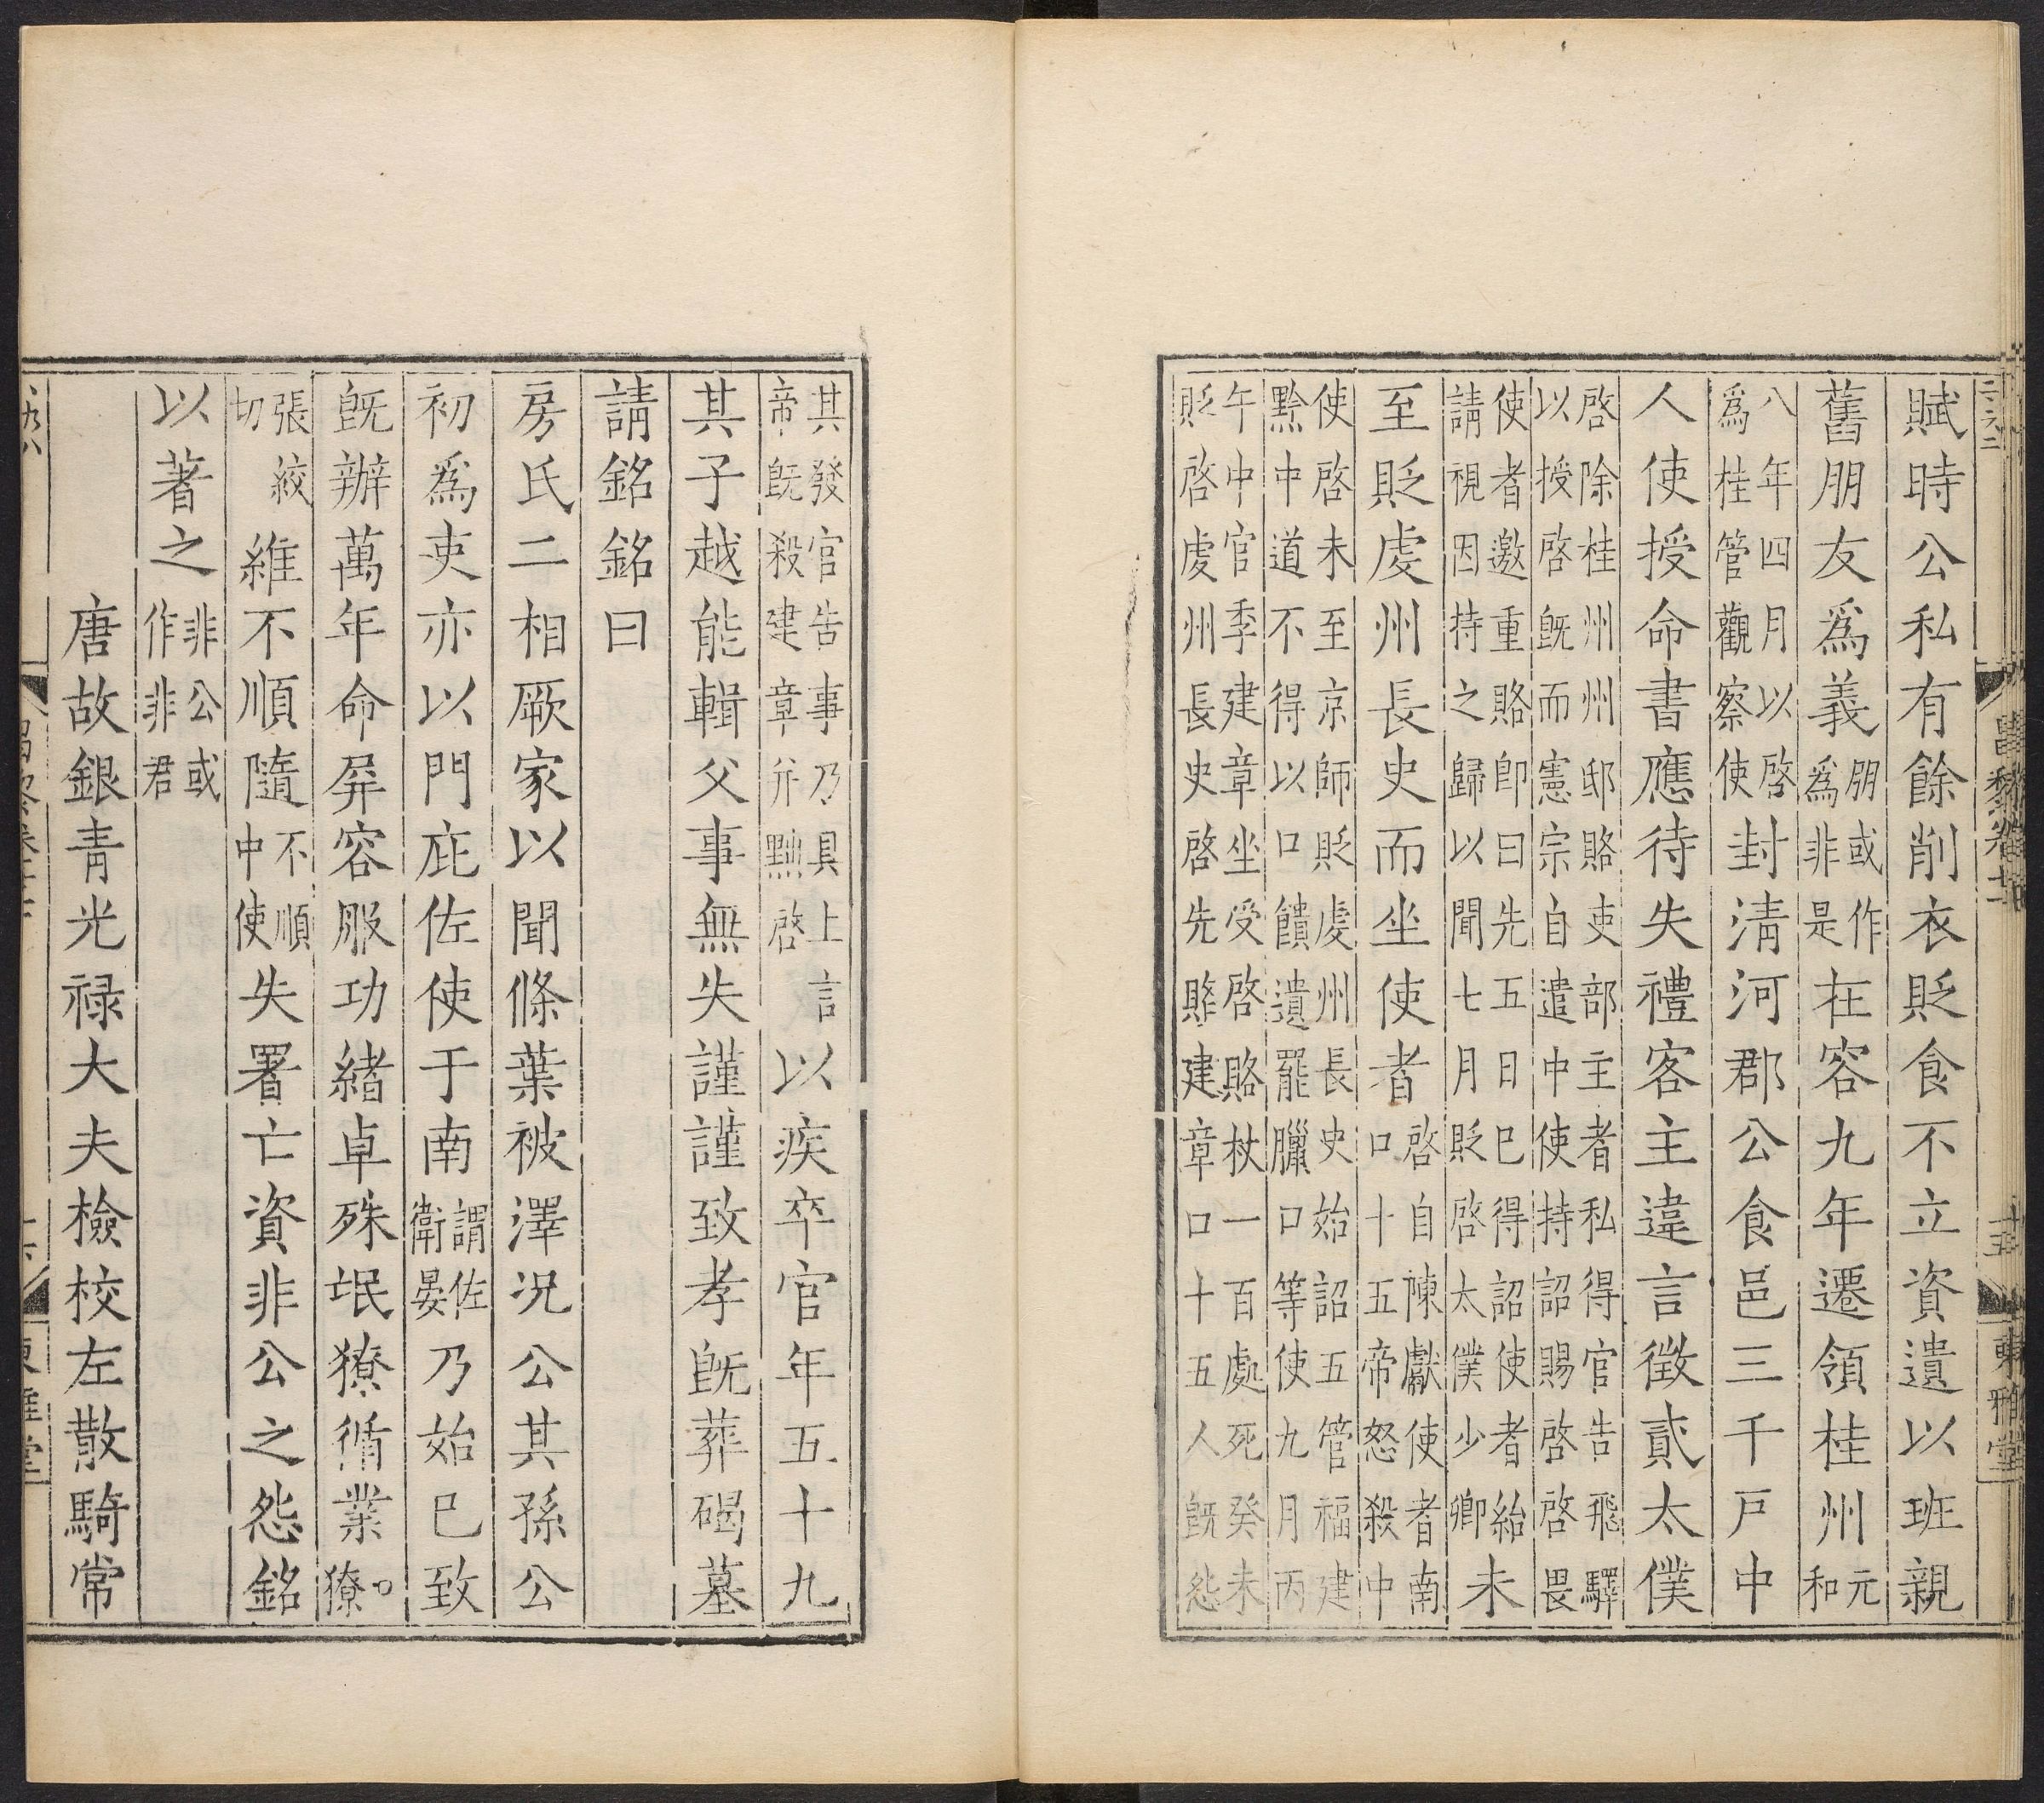 賦時公私有餘削衣貶食不立資遺以班親
舊朋友爲義朋或作爲非是在容九年遷領桂州元和
八年四月以啓爲桂管觀察使封淸河郡公食邑三千戸中
人使授命書應待失禮客主違言徵貳太僕
啓除桂州州邸賂吏部主者私得官告飛驛以授啓旣而憲宗自遣中使持詔賜啓啓畏
使者邀重賂卽曰先五日巳得詔使者紿請視因持之歸以聞七月貶啓太僕少卿未
至貶虔州長史而坐使者啓自陳獻使者南口十五帝怒殺中
使啓未至京師貶虔州長史始詔五管福建黔中道不得以口饋遺罷臘口等使九月丙
午中官季建章坐受啓賂杖一百處死癸未貶啓虔州長史啓先賂建章口十五人旣怨
其發官告事乃具上言帝旣殺建章幷黜啓以疾卒官年五十九
其子越能輯父事無失謹謹致孝旣葬碣墓
請銘銘曰
房氏二相厥家以聞條葉被澤况公其孫公
初爲吏亦以門庇佐使于南謂佐衛晏乃始巳致
旣辦萬年命屏容服功緒卓殊氓獠循業獠
張絞切維不順隨不順中使失署亡資非公之怨銘
以著之非公或作非君
唐故銀靑光祿大夫檢校左散騎常